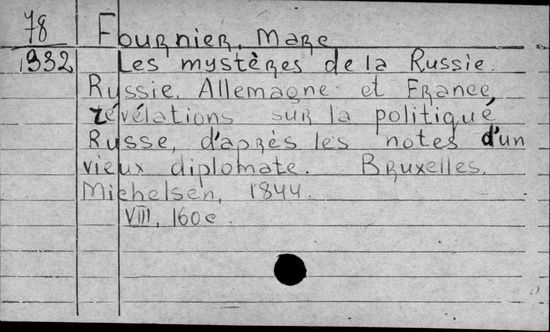 78
Fournier, Marc
1332
Les mystères de la Russie.
Russie, Allemagne et France,
révélations sur la politique
Russe, d'après les notes d'un
vieux diplomate. Bruxelles,
Michelsen, 1844.
VIII, 160 c.